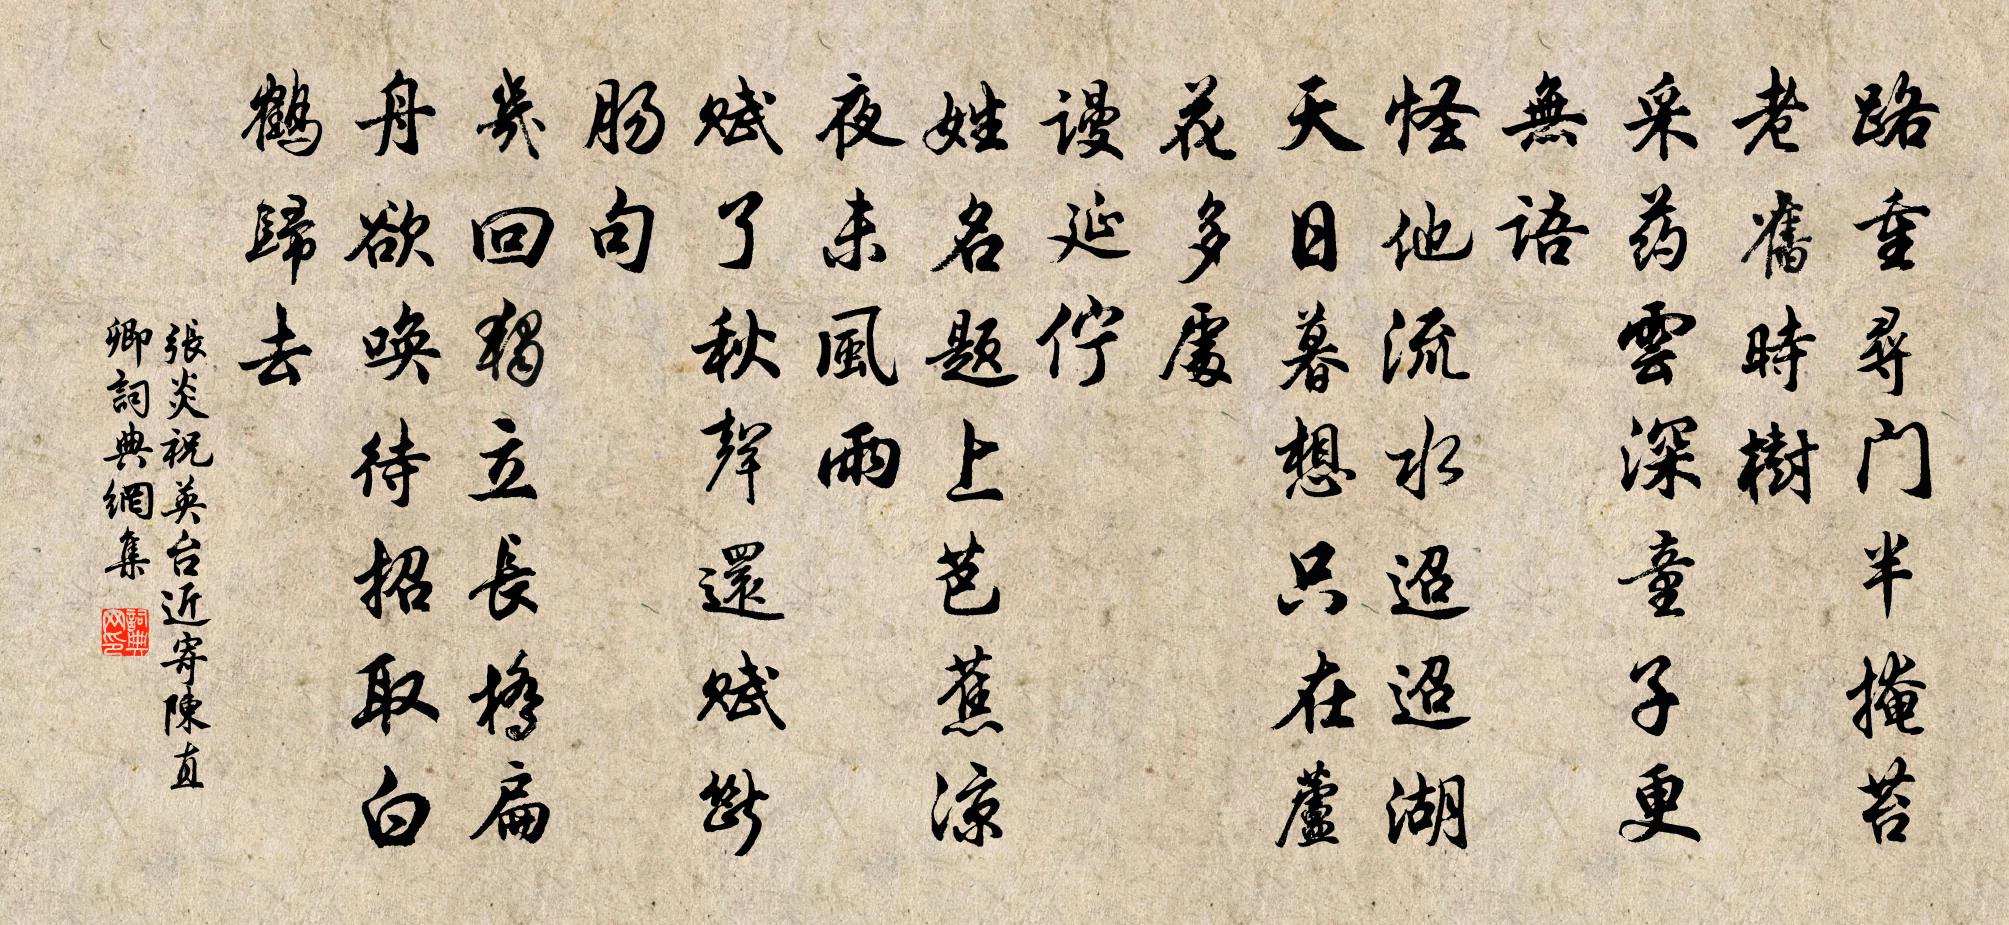 路重尋门半掩苔
老舊時樹
采药雲深童子更
無語
怪他流水迢迢湖
天日暮想只在蘆
花多處
謾延佇
姓名題上芭蕉涼
夜未風雨
賦了秋聲還賦斷
肠句
幾回獨立長橋扁
舟欲唤待招取白
鶴歸去
張炎祝英台近寄陳直
卿詞典網集
詞典
网印